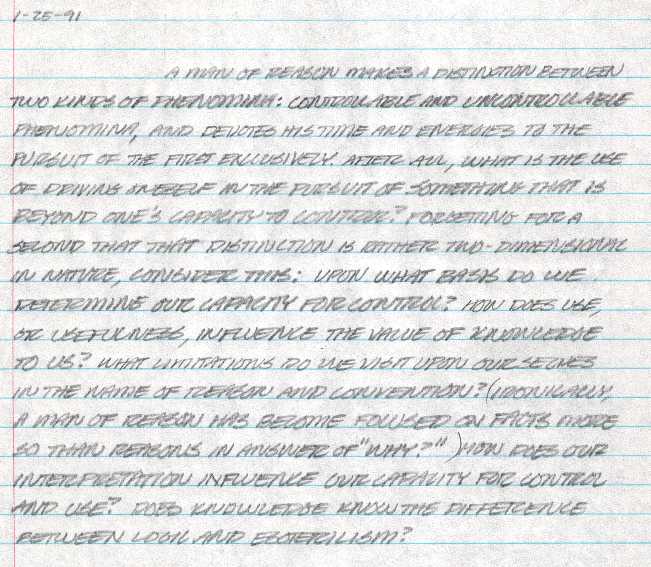 1-25-91
A MAN OF REASON MAKES A DISTINCTION BETWEEN
TWO KINDS OF PHENOMINA: CONTROLLABLE AND UNCONTROLLABLE
PHENOMINA, AND DEVOTES HIS TIME AND ENERGIES TO THE
PURSUIT OF THE FIRST EXCLUSIVELY. AFTER ALL, WHAT IS THE USE
OF DRIVING ONESELF IN THE PURSUIT OF SOMETHING THAT IS
BEYOND ONE'S CAPACITY TO CONTROL? FORGETTING FOR A
SECOND THAT THAT DISTINCTION IS RATHER TWO-DIMENSIONAL
IN NATURE, CONSIDER THIS: UPON WHAT BASIS DO WE
DETERMINE OUR CAPACITY FOR CONTROL? HOW DOES USE,
OR USEFULNESS, INFLUENCE THE VALUE OF KNOWLEDGE
TO US? WHAT LIMITATIONS DO WE VISIT UPON OURSELVES
IN THE NAME OF REASON AND CONVENTION? (IRONICALLY,
A MAN OF REASON HAS BECOME FOCUSED ON FACTS MORE
SO THAN REASONS IN ANSWER OF "WHY?") HOW DOES OUR
INTERPRETATION INFLUENCE OUR CAPACITY FOR CONTROL
AND USE? DOES KNOWLEDGE KNOW THE DIFFERENCE
BETWEEN LOGIC AND ESOTERICISM?